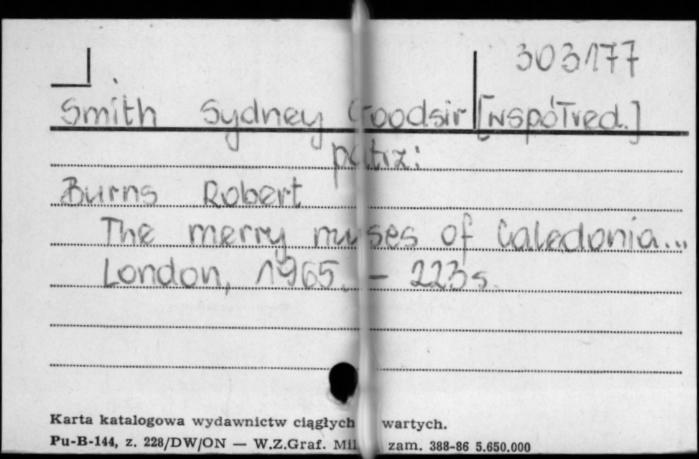 303177
Smith Sydney Goodsir [współred.]
patrz:
Burns Robert
The merry muses of Caledonia...
London, 1965. - 223 s.
Karta katalogowa wydawnictw ciągłych wartych.
Pu-B-144, z. 228/DW/ON — W.Z.Graf. zam. 388-86 5.650.000